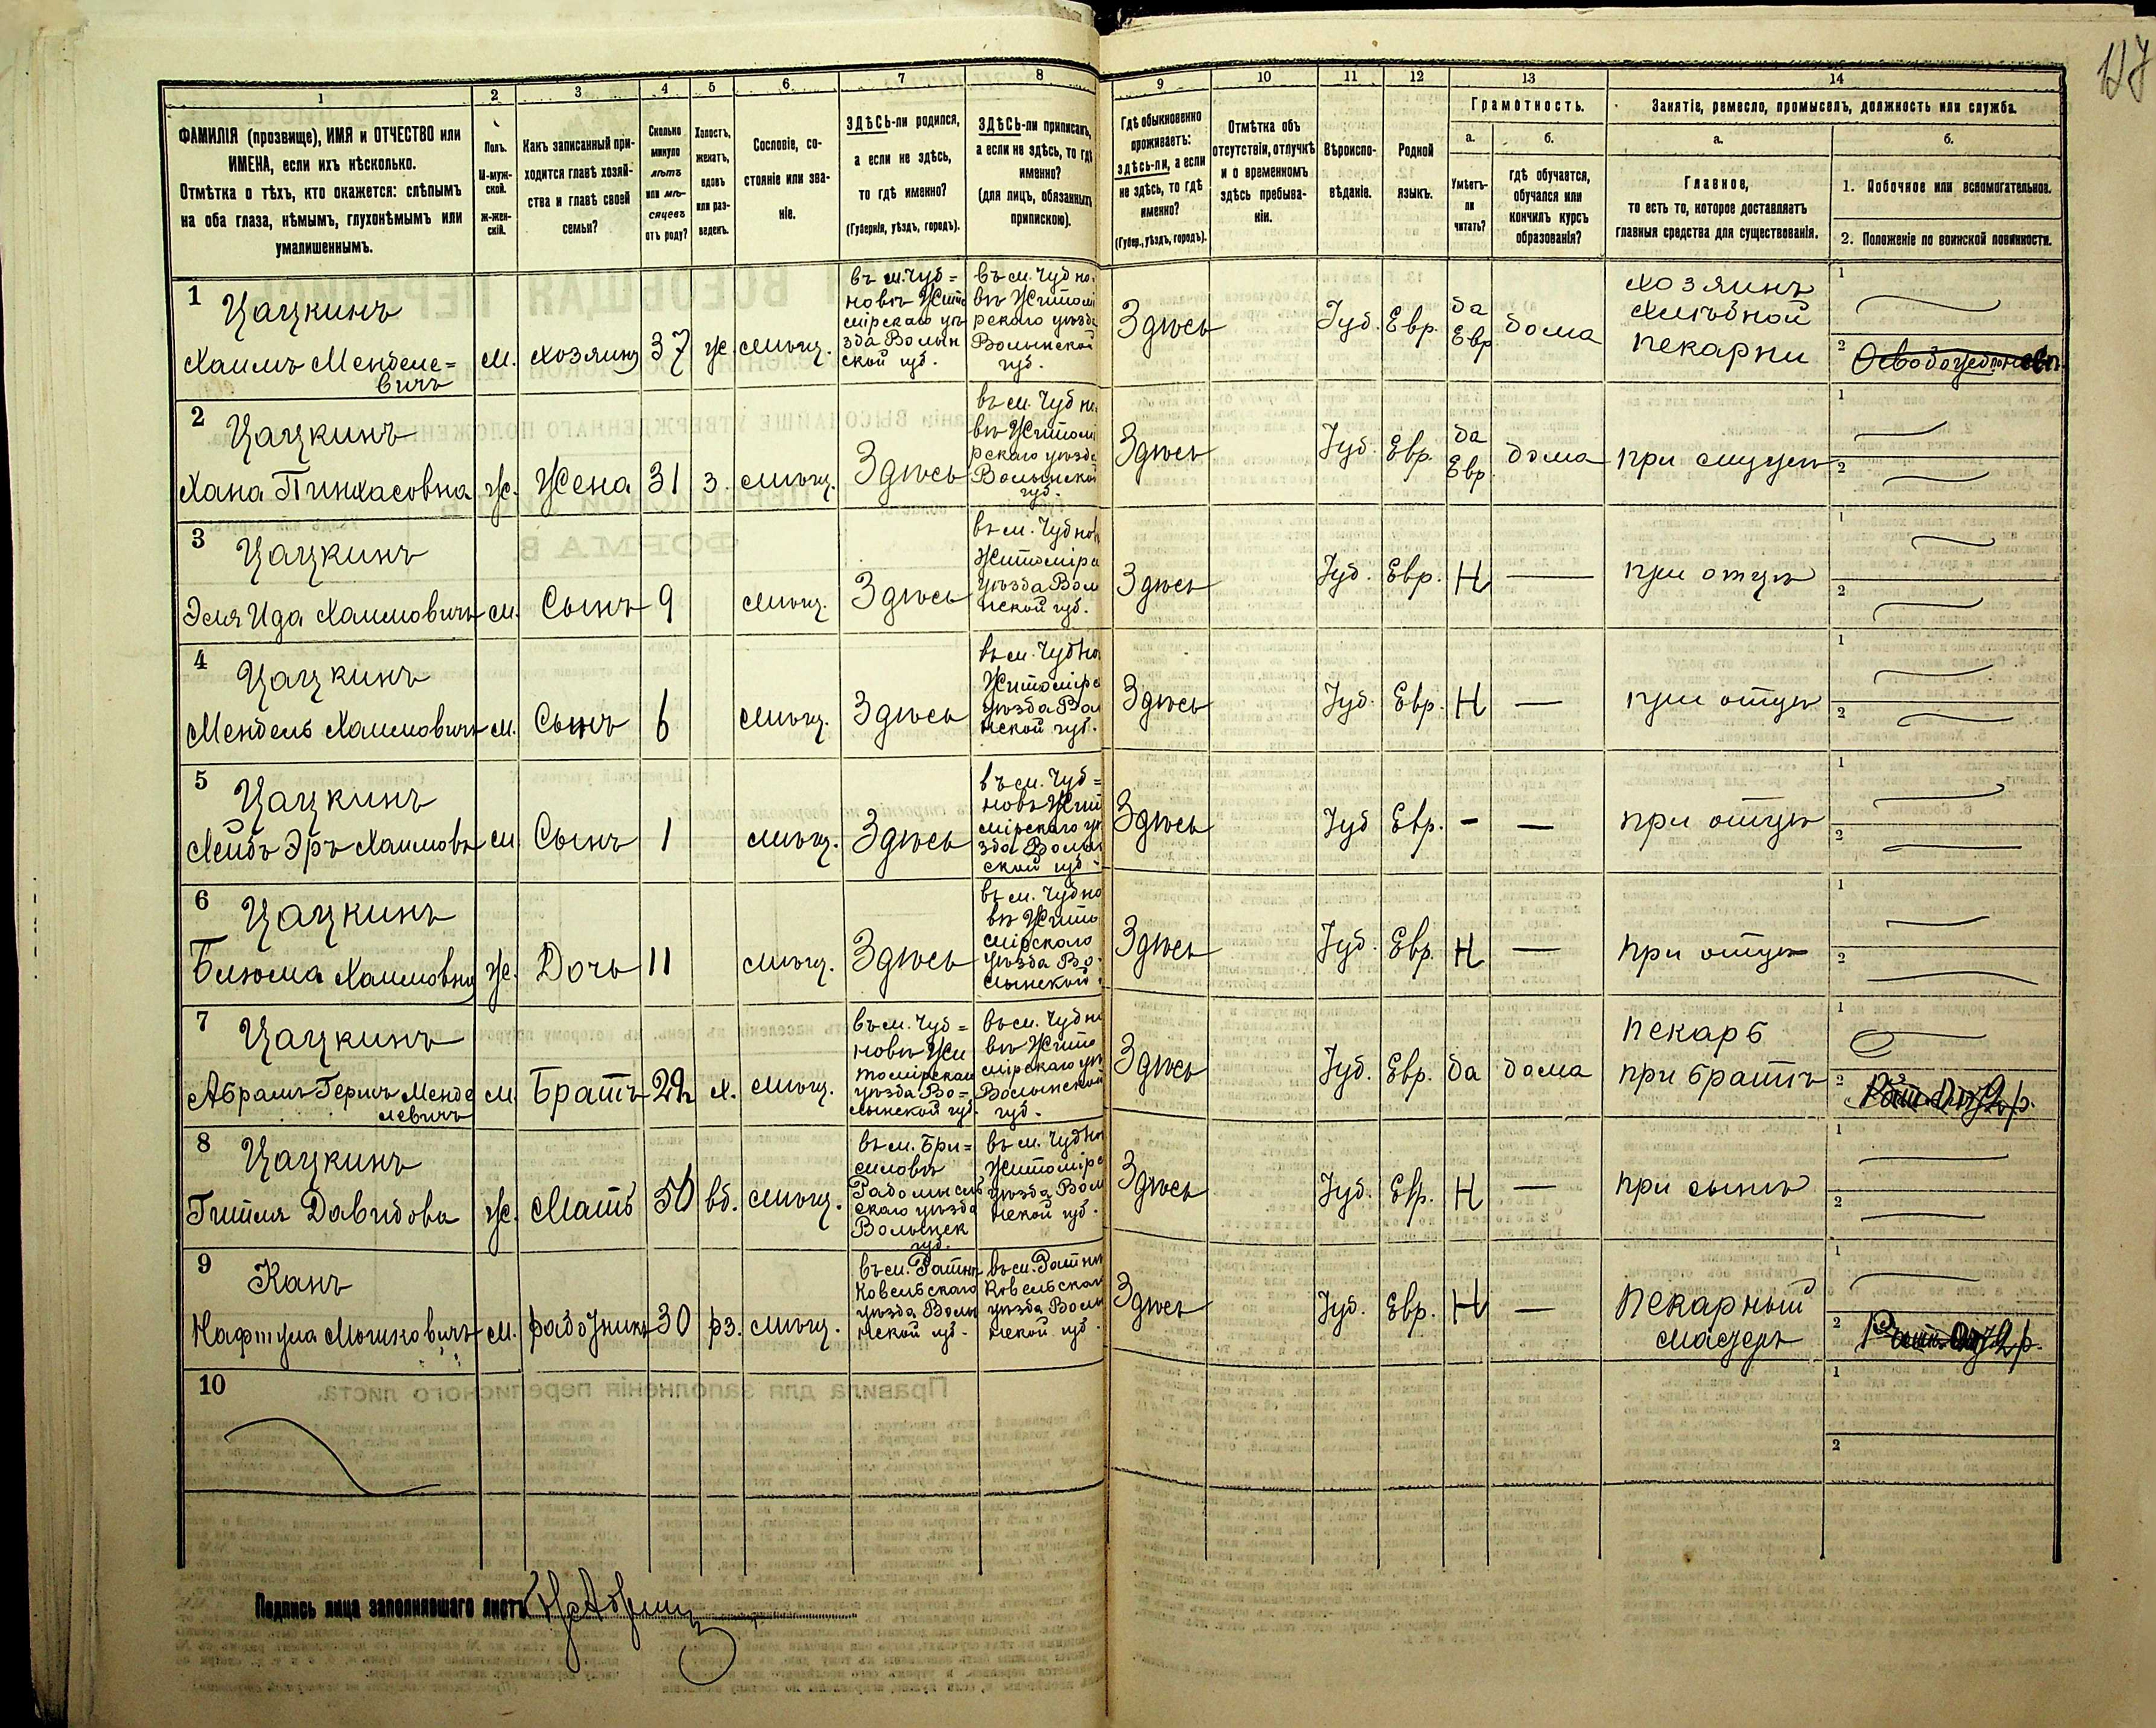 117
1
2
3
4
5
6
7
8
9
10
11
12
13
14
ФАМИЛІЯ (прозвище), ИМЯ и ОТЧЕСТВО или
ИМЕНА, если ихъ нѣсколько.
Отмѣтка о тѣхъ, кто окажется: слѣпымъ
на оба глаза, нѣмымъ, глухонѣмымъ или
умалишеннымъ.
Полъ.
М-муж-
ской.
Ж-жен-
скій.
Какъ записанный при-
ходится главѣ хозяй-
ства и главѣ своей
семьи?
Сколько
минуло
лѣтъ
или мѣ-
сяцевъ
отъ роду?
Холостъ,
женатъ,
вдовъ
или раз-
веденъ.
Сословіе, со-
стояніе или зва-
ніе.
ЗДѢСЬ-ли родился,
а если не здѣсь,
то гдѣ именно?
(Губернія, уѣздъ, городъ).
ЗДѢСЬ-ли приписанъ,
а если не здѣсь, то гдѣ
именно?
(для лицъ, обязанныхъ
припискою).
Гдѣ обыкновенно
проживаетъ:
здѣсь-ли, а если
не здѣсь, то гдѣ
именно?
(Губер., уѣздъ, городъ).
Отмѣтка объ
отсутствіи, отлучкѣ
и о временномъ
здѣсь пребыва-
ніи.
Вѣроиспо-
вѣданіе.
Родной
языкъ.
Грамотность.
а.
Умѣетъ-
ли
читать?
б.
гдѣ обучается,
обучался или
кончилъ курсъ
образованія?
Занятіе, ремесло, промыселъ, должность или служба.
а.
Главное,
то есть то, которое доставляетъ
главныя средства для существованія.
б.
1. Побочное или вспомогательное.
2. Положеніе по воинской повинности.
1
Цацкинъ
Хаимъ Менделе=
вичъ
м.
хозяинъ
37
ж.
мѣщ.
въ м. Чуд=
новѣ Жито
мірскаго уѣ
зда Волын
ской губ.
въ м. Чудно
вѣ Житомі
рскаго уѣзда
Волынской
губ.
Здѣсь
Іуд.
Евр.
да
Евр
дома
хозяинъ
хлѣбной
пекарни
1
2
2
Цацкинъ
Хана Пинхасовна
ж.
Жена
31
з.
мѣщ.
Здѣсь
въ м. Чудно
вѣ Житомі
рскаго уѣзда
Волынской
губ.
Здѣсь
Іуд.
Евр.
да
Евр.
дома
при мужѣ
1
2
3
Цацкинъ
Эля Ида Хаимовичъ
м.
Сынъ
9
мѣщ.
Здѣсь
въ м. Чуднов
Житомірс
уѣзда Волы
нской губ.
Здѣсь
Іуд.
Евр.
Н
—
при отцѣ
1
2
4
Цацкинъ
Мендель Хаимовичъ
м.
Сынъ
6
мѣщ.
Здѣсь
въ м. Чуднов
Житомірс
уѣзда Волы
нской губ.
Здѣсь
Іуд.
Евр.
Н
—
при отцѣ
1
2
5
Цацкинъ
Лейбъ Эръ Хаимовъ
м.
Сынъ
1
мѣщ.
Здѣсь
въ м. Чуд=
новѣ Жит
мірскаго уѣ
зда Волын
ской губ.
Здѣсь
Іуд
Евр.
-
—
при отцѣ
1
2
6
Цацкинъ
Блюма Хаимовна
ж.
Дочь
11
мѣщ.
Здѣсь
въ м. Чудно
вѣ Жито
мірскаго
уѣзда Во-
лынской
Здѣсь
Іуд.
Евр.
Н
—
при отцѣ
1
2
7
Цацкинъ
Абрамъ Гершъ Менде
левичъ
м.
Братъ
22
х.
мѣщ.
въ м. Чуд=
новѣ Жи
томірскаго
уѣзда Во=
лынской губ.
въ м. Чудно
вѣ Жито
мірскаго уѣ
Волынской
губ.
Здѣсь
Іуд.
Евр.
да
дома
пекарь
при братѣ
1
2
8
Цацкинъ
Гитля Давидова
ж.
Мать
50
вд.
мѣщ.
въ м. Бри=
силовѣ
Радомысль
скаго уѣзда
Волынск
губ.
въ м. Чуднов
Житомірс
уѣзда Волы
нской губ.
Здѣсь
Іуд.
Евр.
Н
—
при сынѣ
1
2
9
Канъ
Нафтула Мошковичъ
м.
работникъ
30
рз.
мѣщ.
въ м. Ратнѣ
Ковельскаго
уѣзда Волы
нской губ.
въ м. Ратнѣ
Ковельскаго
уѣзда Волы
нской губ.
Здѣсь
Іуд.
Евр.
Н
—
Пекарный
мастеръ
1
2
10
1
2
Подпись лица заполнявшаго листъ